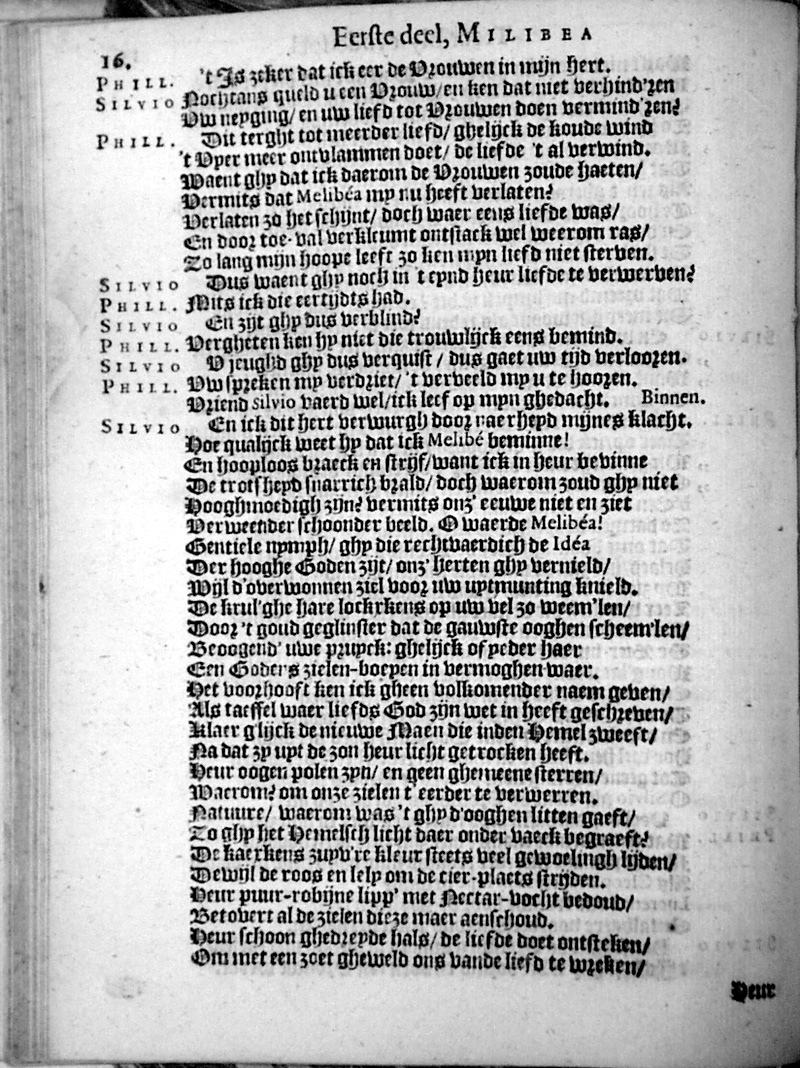 Eerste deel, MILIBEA
16.
PHILL. 't Is zeker dat ick eer de Vrouwen in mijn hert.
SILVIO Nochtans queld u een Vrouw/ en ken dat niet verhind'ren
Uw neyging/ en uw liefd tot Vrouwen doen vermind'ren?
PHILL. Dit terght tot meerder liefd/ ghelijck de koude wind
't Vyer meer ontvlammen doet/ de liefde 't al verwind.
Waent ghy dat ick daerom de Vrouwen zoude haeten/
Vermits dat Melibéa my nu heeft verlaten?
Verlaten zo het schijnt/ doch waer eens liefde was/
En door toe-val verkleumt ontstack wel weerom ras/
Zo lang mijn hoope leeft zo ken myn liefd niet sterven.
SILVIO Dus waent ghy noch in 't eynd heur liefde te verwerven?
PHILL. Mits ick die eertijdts had.
SILVIO En zijt ghy dus verblind?
PHILL. Vergheten ken hy niet die trouwlijck eens bemind.
SILVIO U jeughd ghy dus verquist/ dus gaet uw tijd verlooren.
PHILL. Uw spreken my verdriet/ 't verveeld my u te hooren.
Vriend Silvio vaerd wel/ ick leef op myn ghedacht. Binnen.
SILVIO En ick dit hert verwurgh door naerheyd mijnes klacht.
Hoe qualijck weet hy dat ick Melibé beminne!
En hooploos braeck en strijf/ want ick in heur bevinne
De trotsheyd snarrich brald/ doch waerom zoud ghy niet
Hooghmoedigh zijn? vermits onz' eeuwe niet en ziet
Verweender schoonder beeld. O waerde Melibéa!
Gentiele nymph/ ghy die rechtvaerdich de Idéa
Der hooghe Goden zijt/ onz' herten ghy vernield/
Wijl d'overwonnen ziel voor uw uytmunting knield.
De krul'ghe hare lockrkens op uw vel zo weem'len/
Door 't goud geglinster dat de gauwste ooghen scheem'len/
Beoogend' uwe pruyck: ghelijck of yeder haer
Een Goders zielen-boeyen in vermoghen waer.
Het voorhooft ken ick gheen volkomender naem geven/
Als taeffel waer liefds God zijn wet in heeft geschreven/
Klaer g'lijck de nieuwe Maen die inden Hemel zweeft/
Na dat zy uyt de zon heur licht getrocken heeft.
Heur oogen polen zyn/ en geen ghemeene sterren/
Waerom? om onze zielen t'eerder te verwerren.
Natuure/ waerom was 't ghy d'ooghen litten gaeft/
Zo ghy het Hemelsch licht daer onder vaeck begraeft?
De kaerkens zuyv're kleur steets veel gewoelingh lijden/
Dewijl de roos en lely om de cier-plaets strijden.
Heur puur-robijne lipp' met Nectar-vocht bedoud/
Betovert al de zielen dieze maer aenschoud.
Heur schoon ghedreyde hals/ de liefde doet ontsteken/
Om met een zoet gheweld ons vande liefd te wreken/
Heur